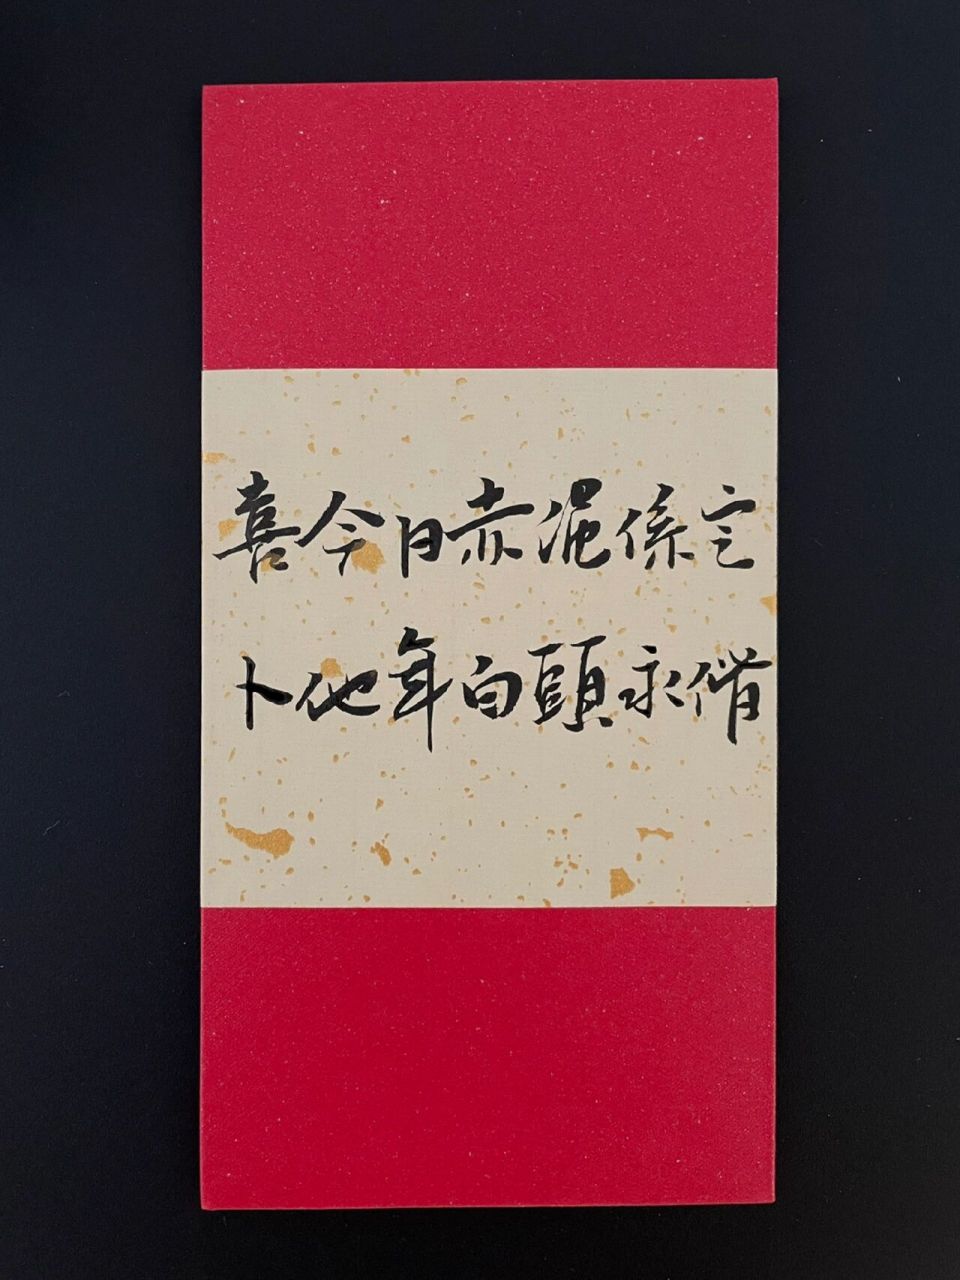 喜今日赤繩係定
卜他年白頭永偕